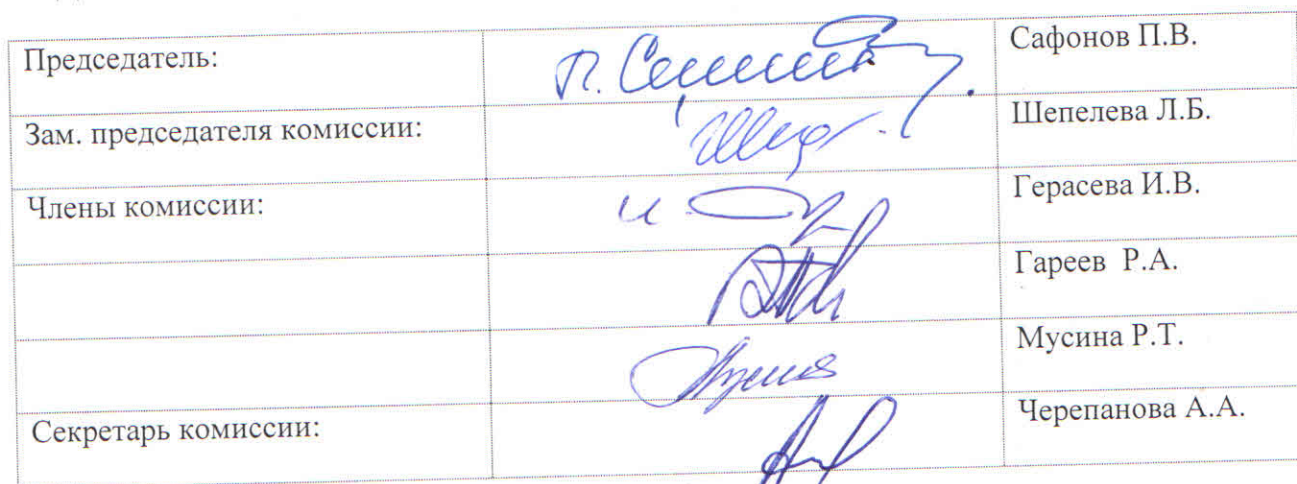 Председатель: Сафонов П.В.
Зам. председателя комиссии: Шепелева Л.Б.
Члены комиссии: Герасева И.В.
Гареев Р.А.
Мусина Р.Т.
Секретарь комиссии: Черепанова А.А.